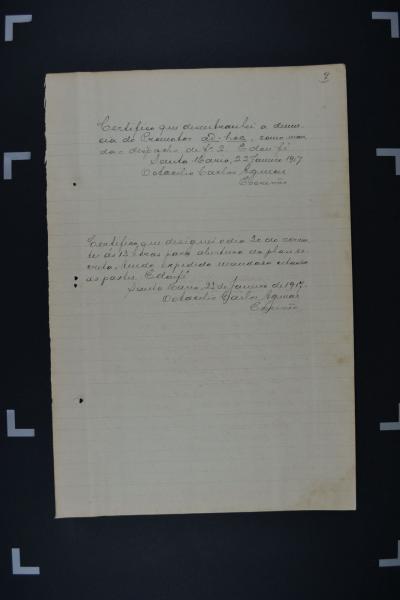 9
Certifico que desentranhei a denun-
cia do Promotor ad-hoc, como man
da o despacho de fs. 2. E dou fé
Santa Maria, 22 Janeiro 1917
Octacilio Carlos Aguiar
Escrivão
Certifico que designei o dia 2 do corren-
te as 13 horas para abertura do plense
creto, tendo expedido mandado citando
as partes. E dou fé
Santa Maria, 23 de Janeiro de 1917.
Octacilio Carlos Aguiar
Escrivão